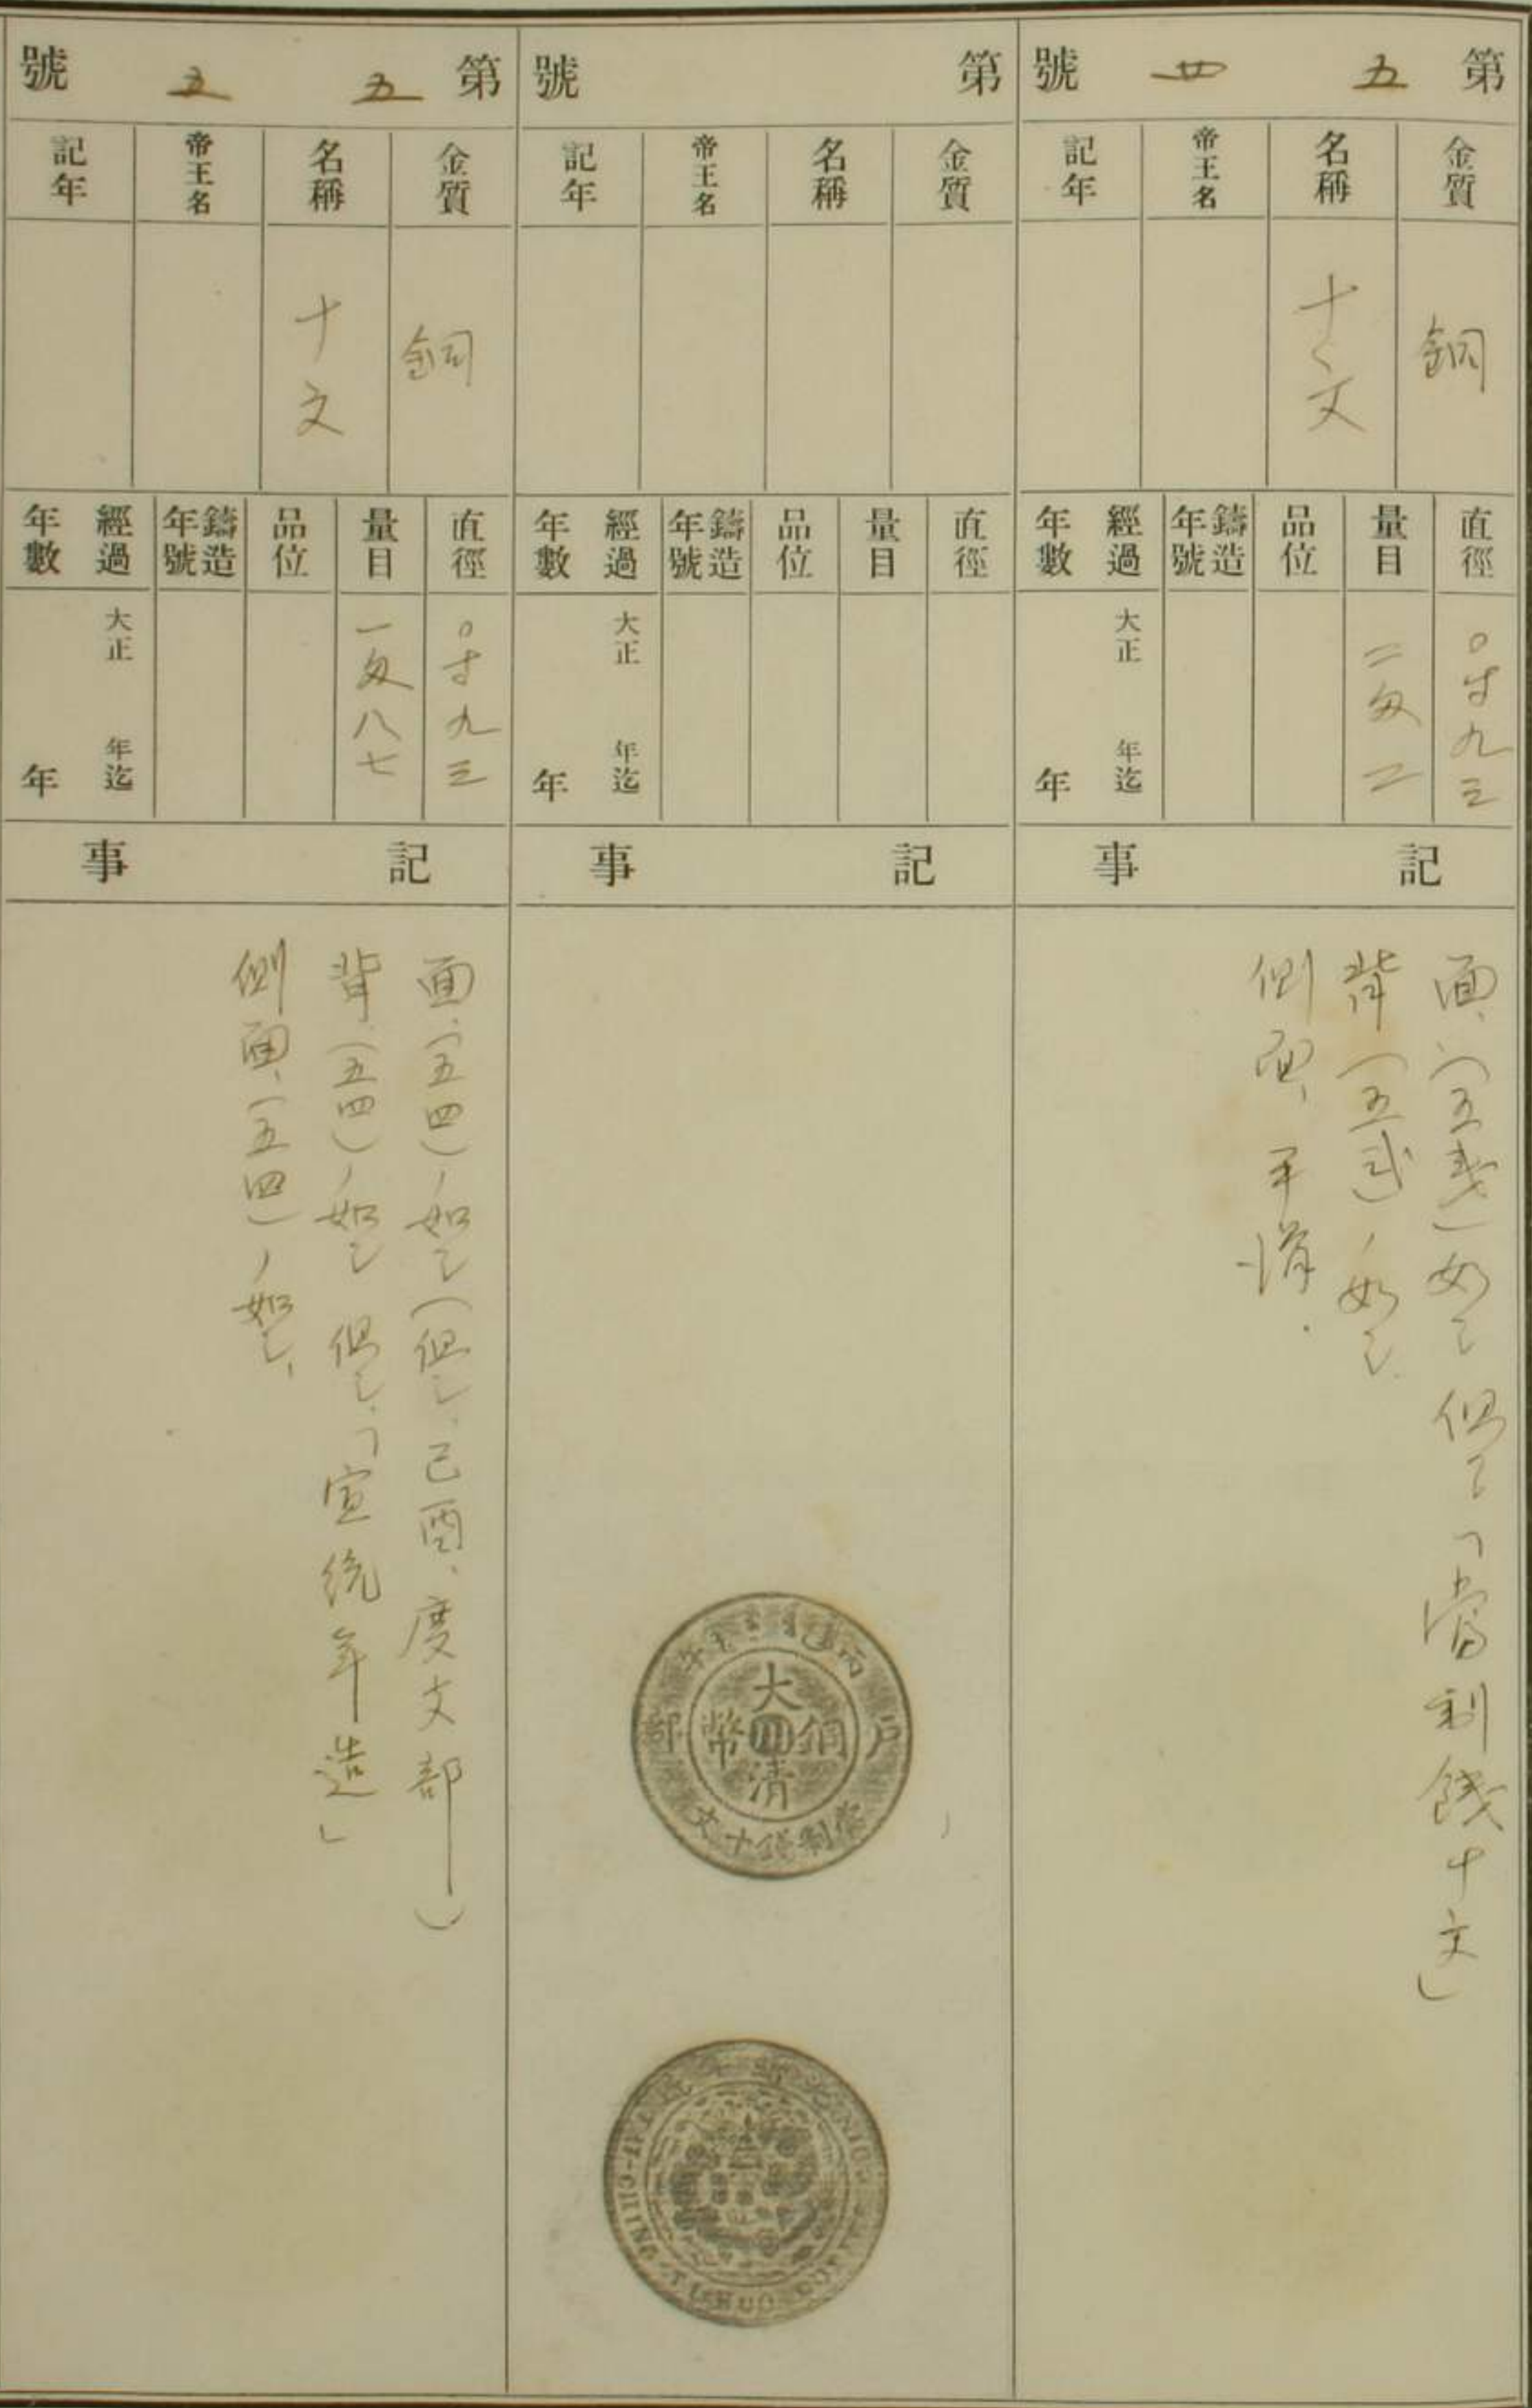 第五四號
金質
名稱
帝王名
記年
銅
十文
直徑
量目
品位
鑄造年號
經過年數
〇寸九三
二匁二
大正 年迄
年
記事
面、(五
如シ 但シ「當利錢十文」
背(五弐)ノ如シ
側面、平滑.
第 號
金質
名稱
帝王名
記年
直徑
量目
品位
鑄造年號
經過年數
大正 年迄
年
記事
丙午
戶部
大清銅幣
川
當制錢十文
TAI-CHING TI-KUO COPPER COIN
第五五號
金質
名稱
帝王名
記年
銅
十文
直徑
量目
品位
鑄造年號
經過年數
〇寸九三
一匁八七
大正 年迄
年
記事
面、(五四)ノ如シ(但シ、己酉、度支部)
背、(五四)ノ如シ 但シ、「宣統年造」
側面、(五四)ノ如シ、